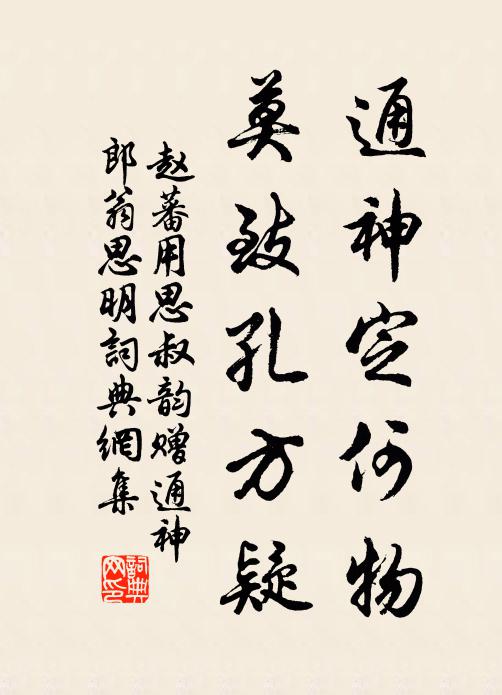 通神定何物
莫致孔方疑
赵蕃用思叔韵赠通神
郎翁思明詞典網集
詞典
网印